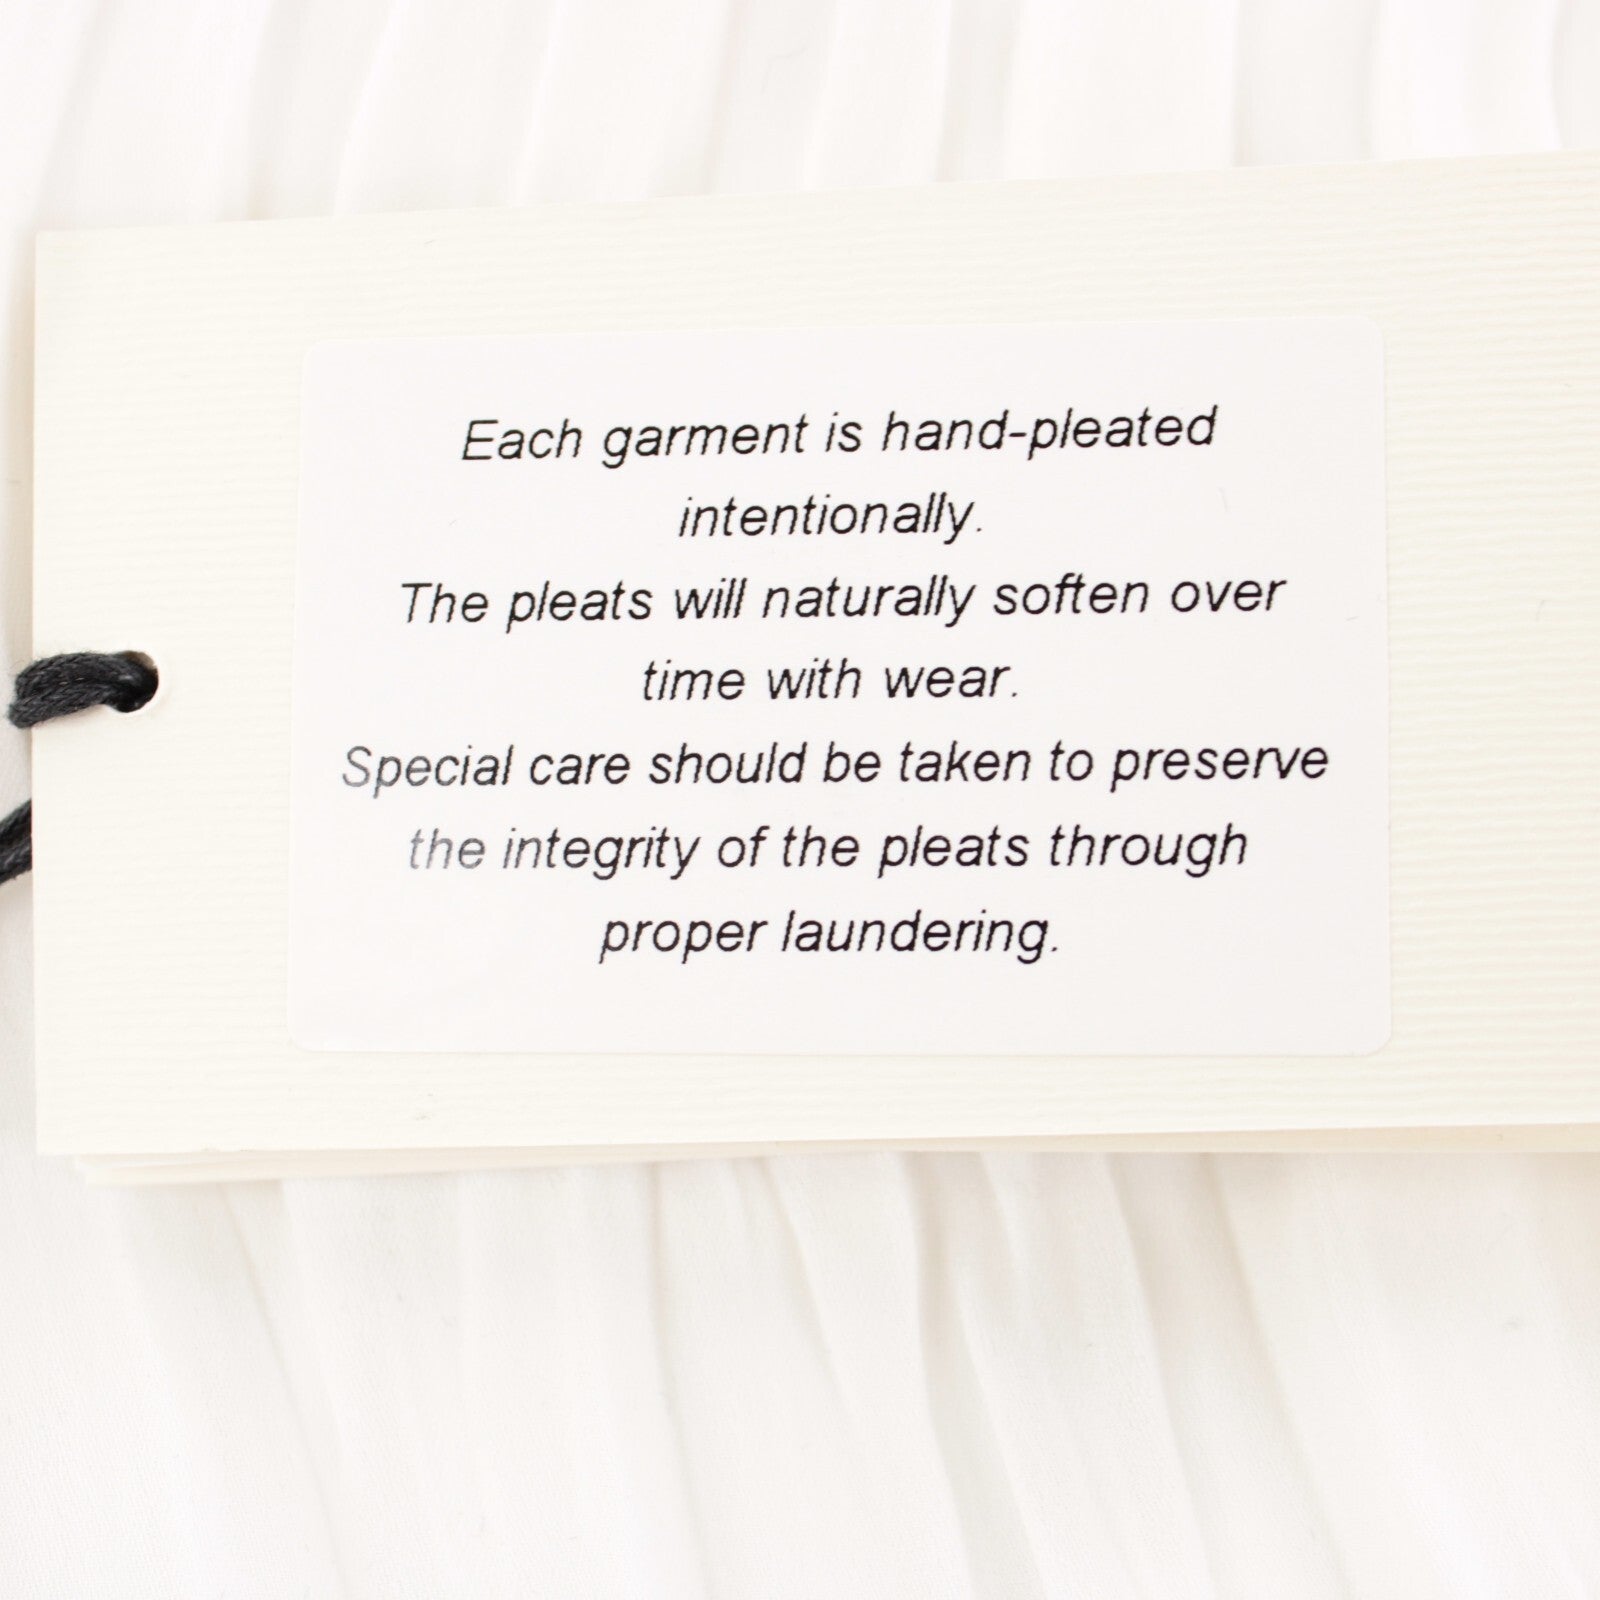 Each garment is hand-pleated
intentionally.
The pleats will naturally soften over
time with wear.
Special care should be taken to preserve
the integrity of the pleats through
proper laundering.